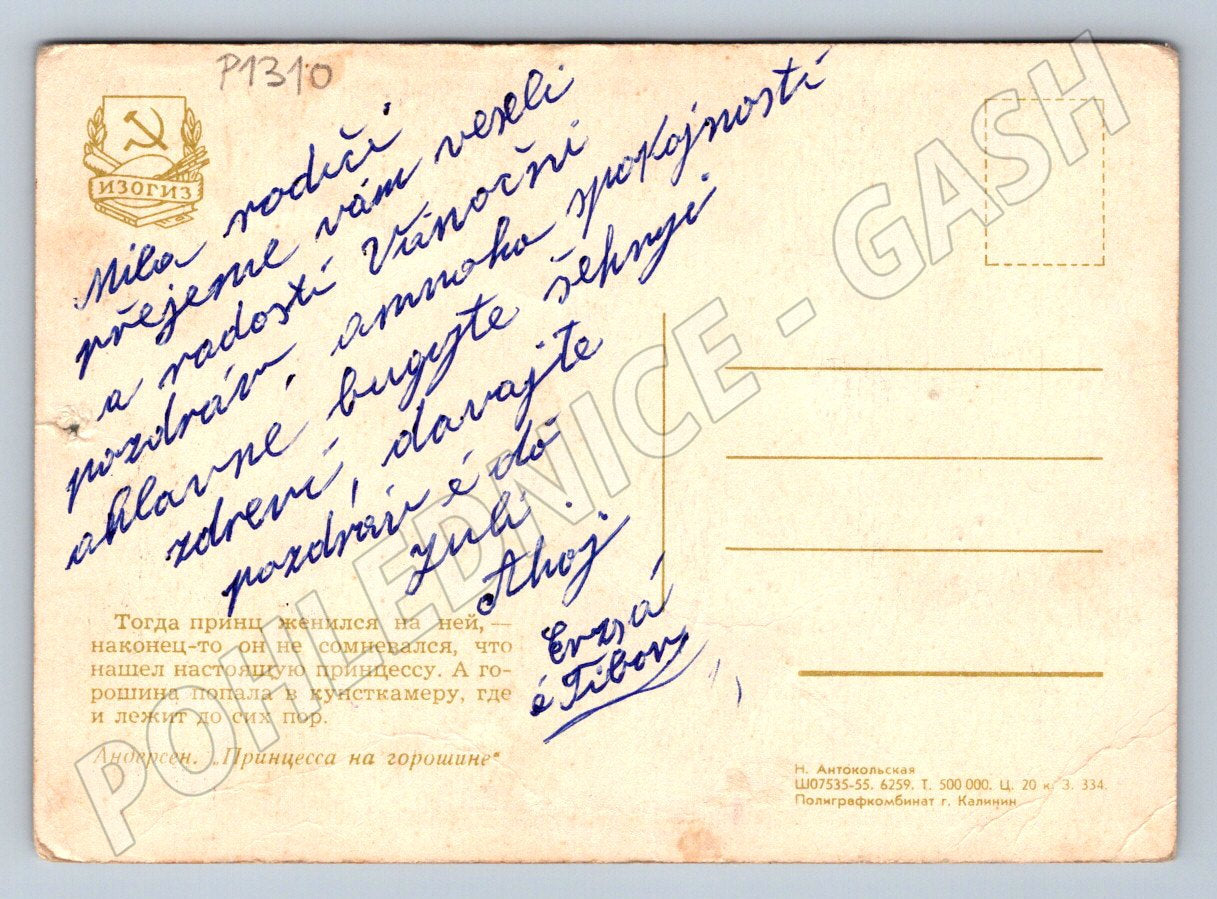 P1310
ИЗОГИЗ
Mila rodiči
přejeme vám veseli
a radostí Viánočni
pozdráv, amnoho spokojností
ahlavne bugyte šehnyi
zdreví, davajte
pozdráv é do
Zuli.
Ahoj.
Erzsá
é Tibor
Тогда принц женился на ней, —
наконец-то он не сомневался, что
нашел настоящую принцессу. А го-
рошина попала в кунсткамеру, где
и лежит до сих пор.
Андерсен. „Принцесса на горошине"
Н. Антокольская
Ш07535-55. 6259. Т. 500 000. Ц. 20 к. З. 334.
Полиграфкомбинат г. Калинин
POHLEDNICE - GASH